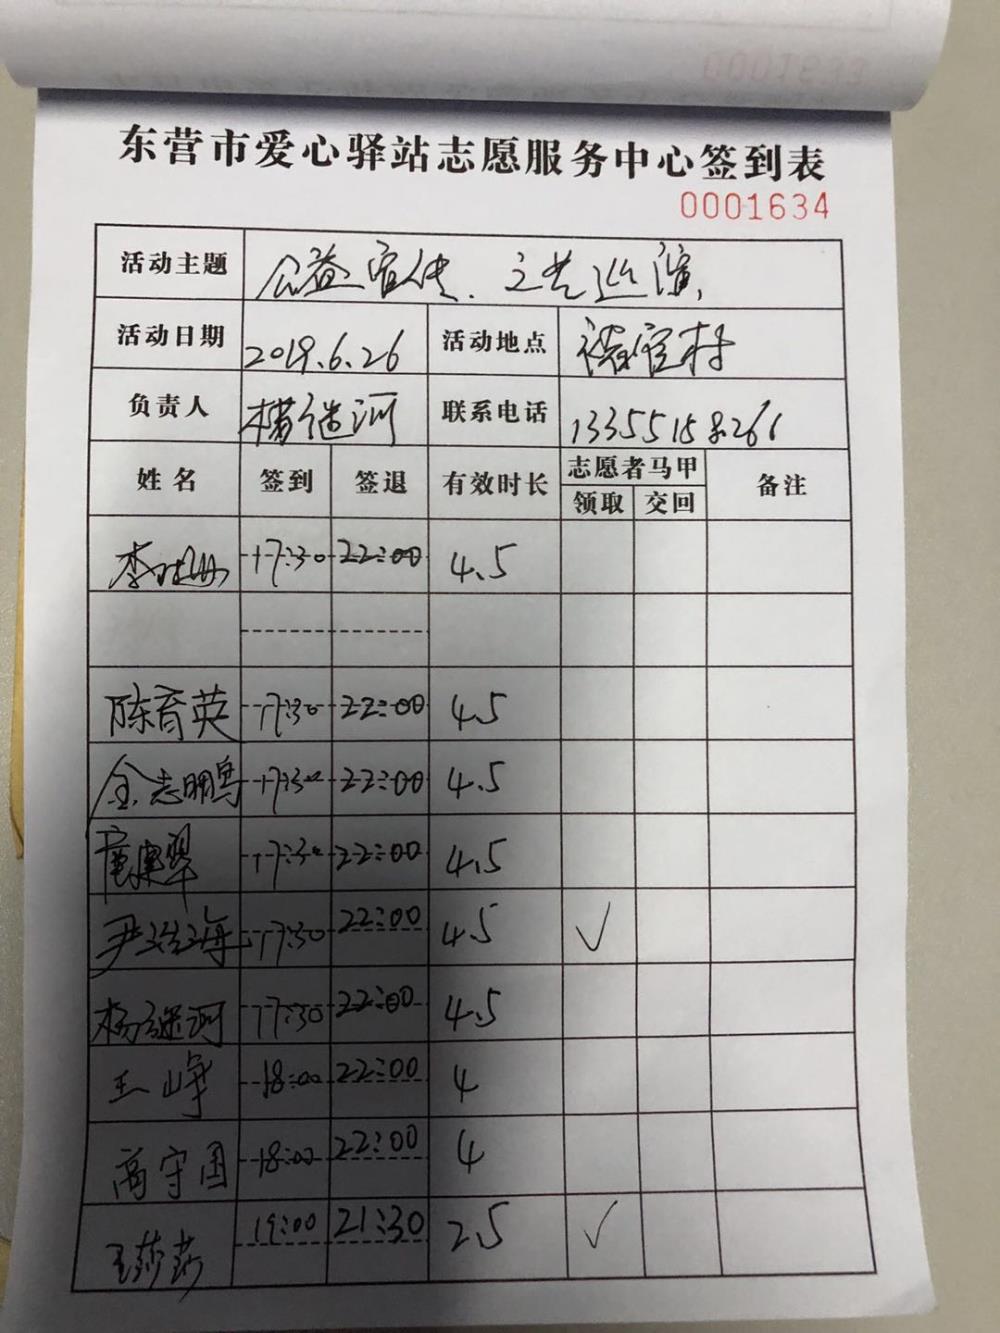 东营市爱心驿站志愿服务中心签到表
0001634
活动主题 公益宣传、文艺巡演、
活动日期 2019.6.26 活动地点 褚官村
负责人 杨继河 联系电话 13355158261
姓名 签到 签退 有效时长 志愿者马甲 领取 交回 备注
李 17:30 22:00 4.5
陈育英 17:30 22:00 4.5
金志鹏 17:30 22:00 4.5
17:30 22:00 4.5
尹 17:30 22:00 4.5 √
杨继河 17:30 22:00 4.5
王峰 18:00 22:00 4
高守国 18:00 22:00 4
王莎莎 19:00 21:30 2.5 √